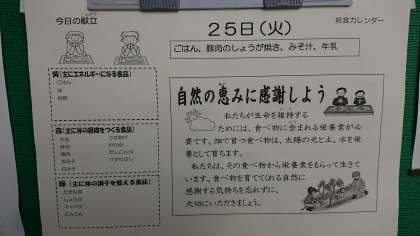 今日の献立
25日(火)
給食カレンダー
ごはん、豚肉のしょうが焼き、みそ汁、牛乳
黄(主にエネルギーになる食品)
ごはん
油
砂糖
赤(主に体の組織をつくる食品)
牛乳
豚肉
豆腐
油あげ
わかめ
緑(主に体の調子を整える食品)
たまねぎ
しょうが
キャベツ
にんじん
自然の恵みに感謝しよう
私たちが生命を維持する
ためには、食べ物に含まれる栄養素が必
要です。畑で育つ食べ物は、太陽の光と土、水を栄
養として育ちます。
私たちは、その食べ物から栄養素をもらって生きて
います。食べ物を育ててくれる自然に
感謝する気持ちを忘れずに、
大切にいただきましょう。